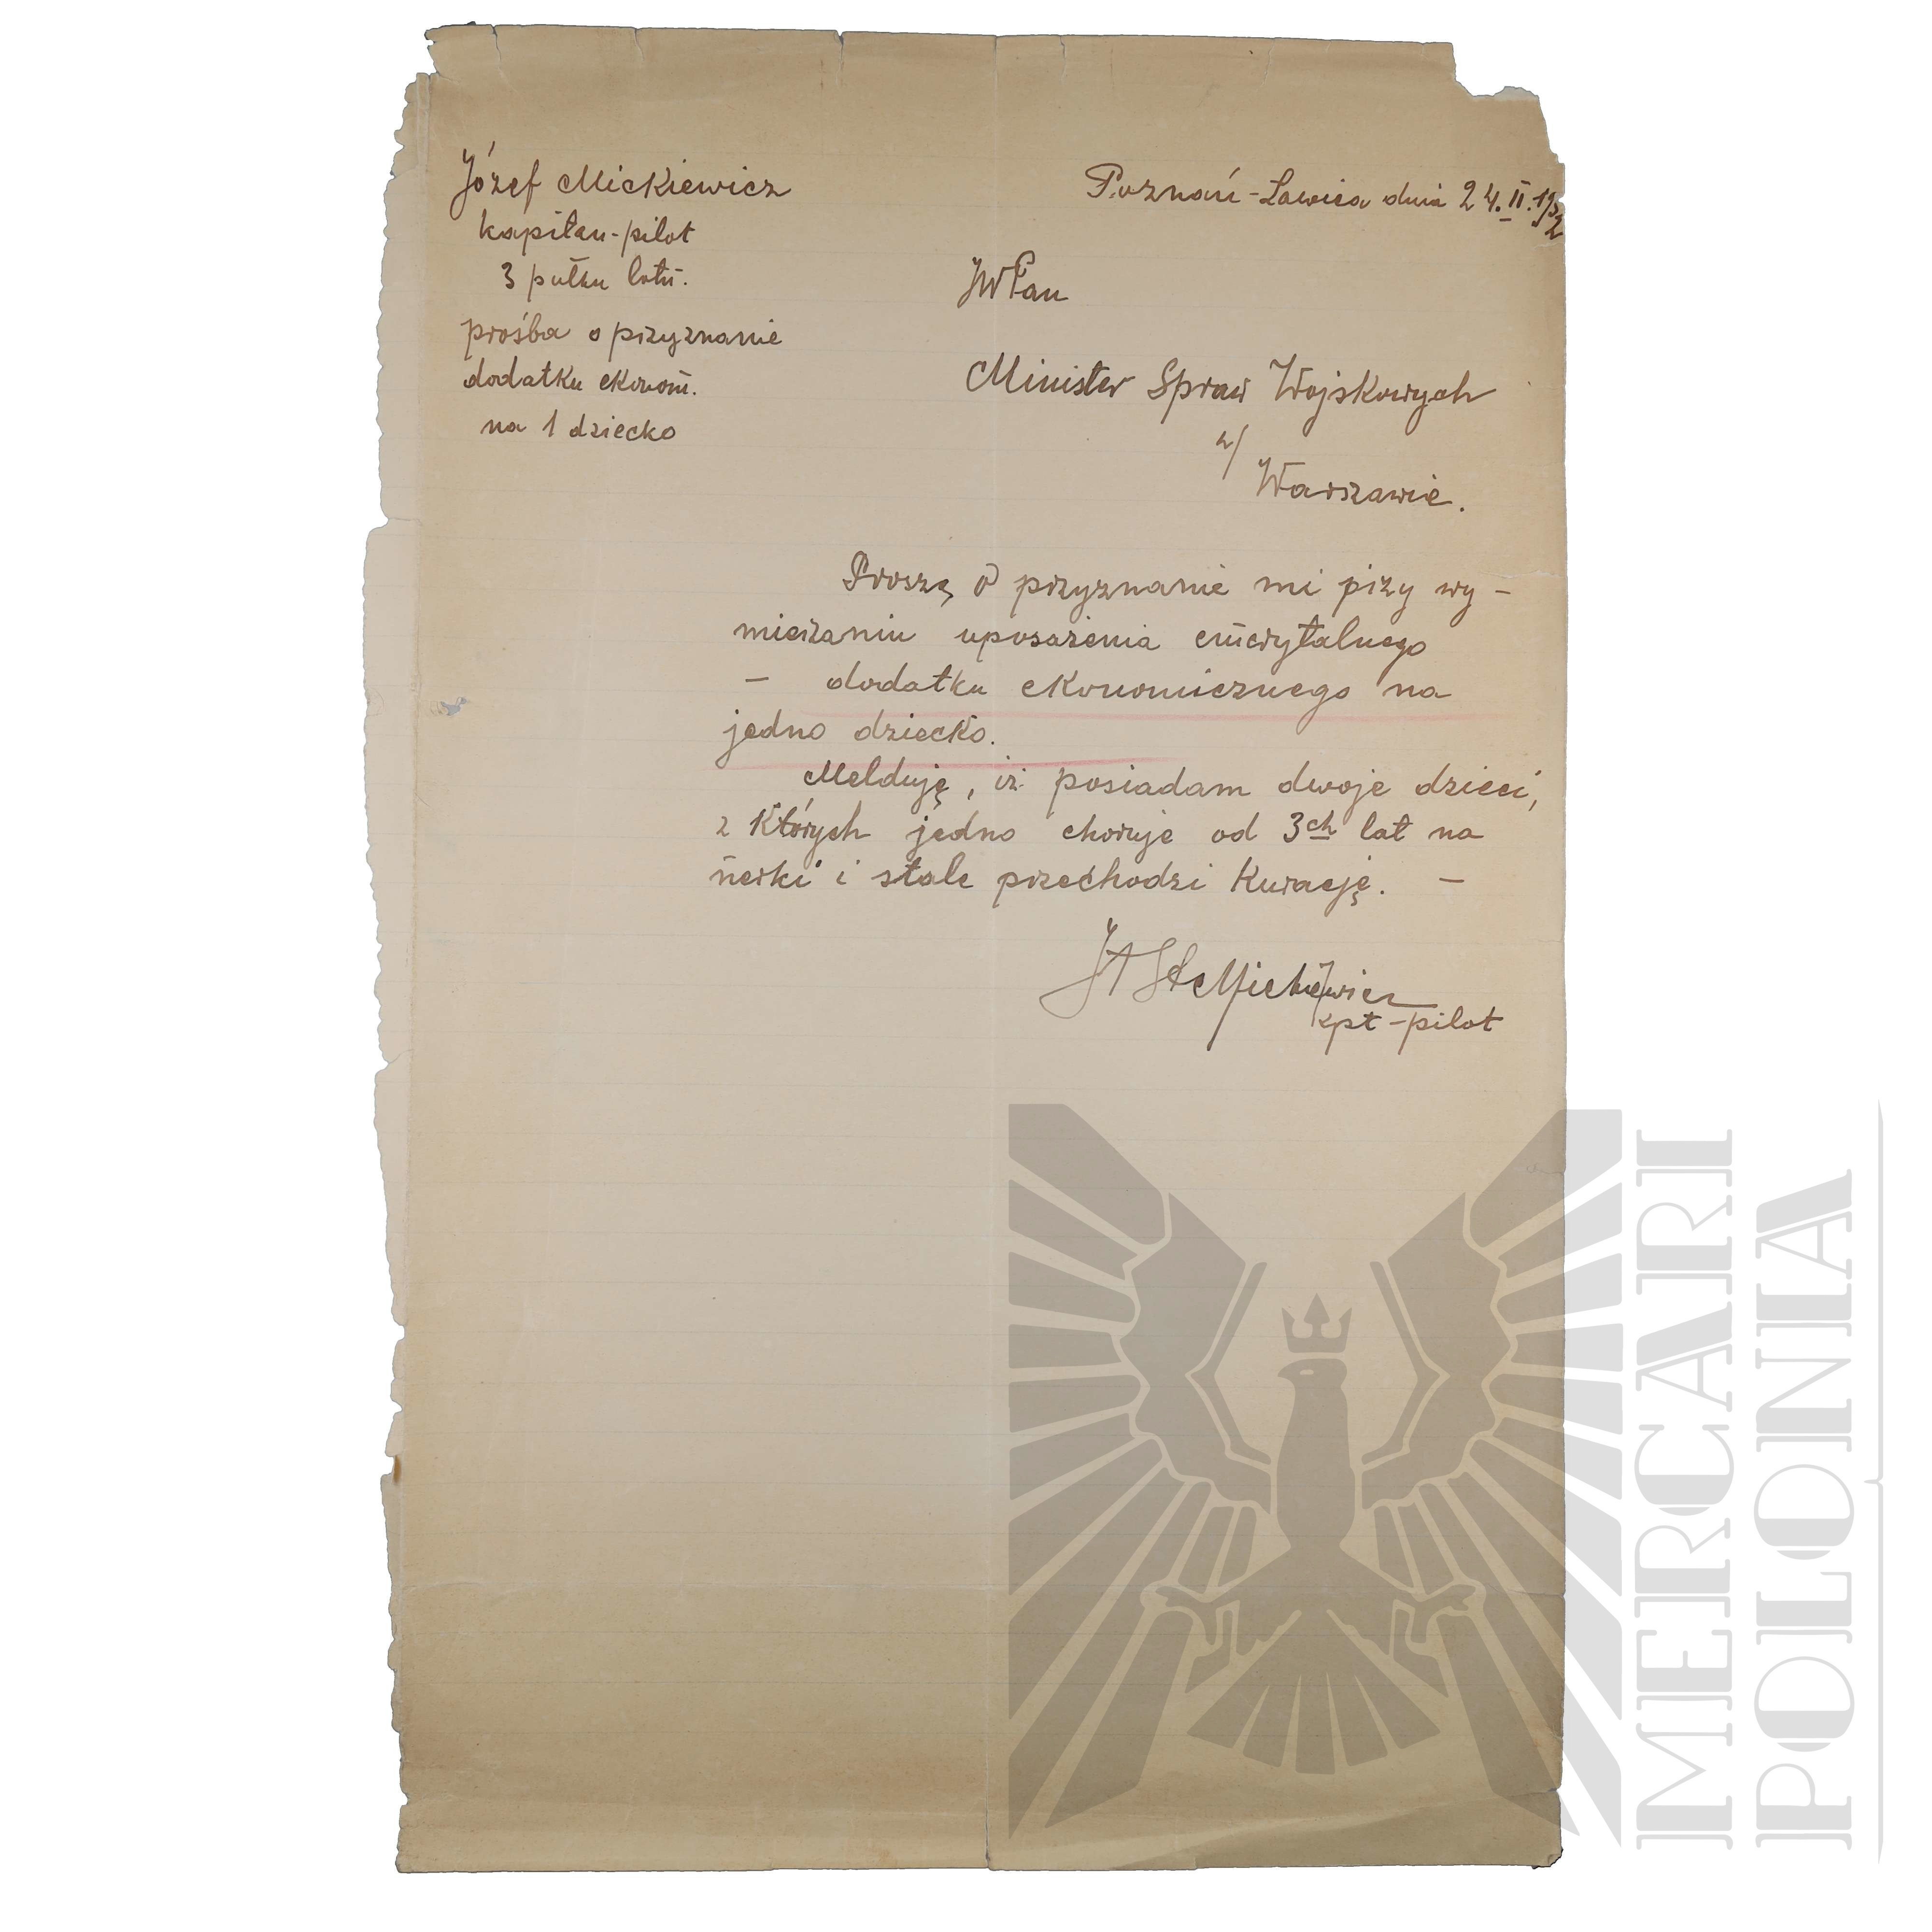 Józef Mickiewicz
kapitan-pilot
3 pułku lotn.
prośba o przyznanie
dodatku ekonom.
na 1 dziecko
Poznań-Ławica dnia 24.II.1932
JWPan
Minister Spraw Wojskowych
w/
Warszawie.
Proszę o przyznanie mi przy wy-
mierzaniu uposażenia emerytalnego
- dodatku ekonomicznego na
jedno dziecko.
Melduję, iż posiadam dwoje dzieci,
z których jedno choruje od 3ch lat na
nerki i stale przechodzi kurację. -
Mickiewicz
kpt-pilot
MERCARI
POLONIA